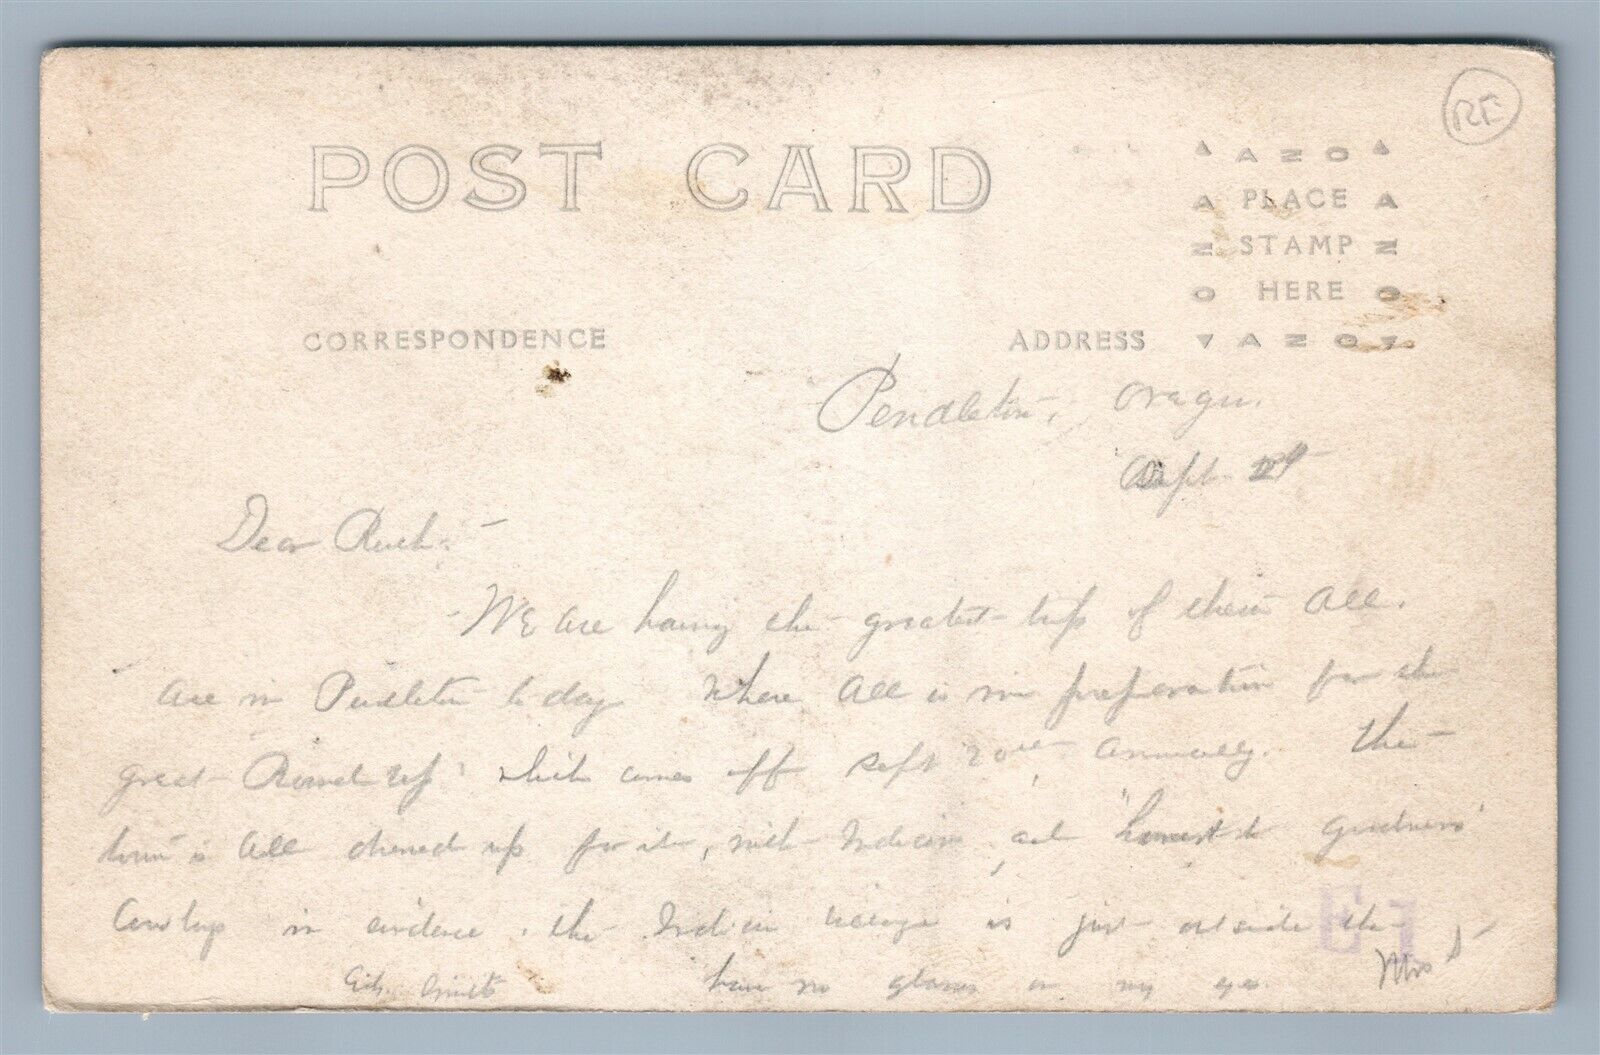 RF
POST CARD
AZO
PLACE
STAMP
HERE
AZO
CORRESPONDENCE
ADDRESS
Pendleton, Oregon.
Sept
Dear Ruth:-
We are having the greatest trip of them all.
are in Pendleton to day where all is in preparation for the
great Round up which comes off Sept 20th annually. the
town is all dressed up for it, with Indians and "honest to goodness"
Cowboys in evidence. the Indian village is just outside the
City limits have no glasses on my eyes. Mrs S-